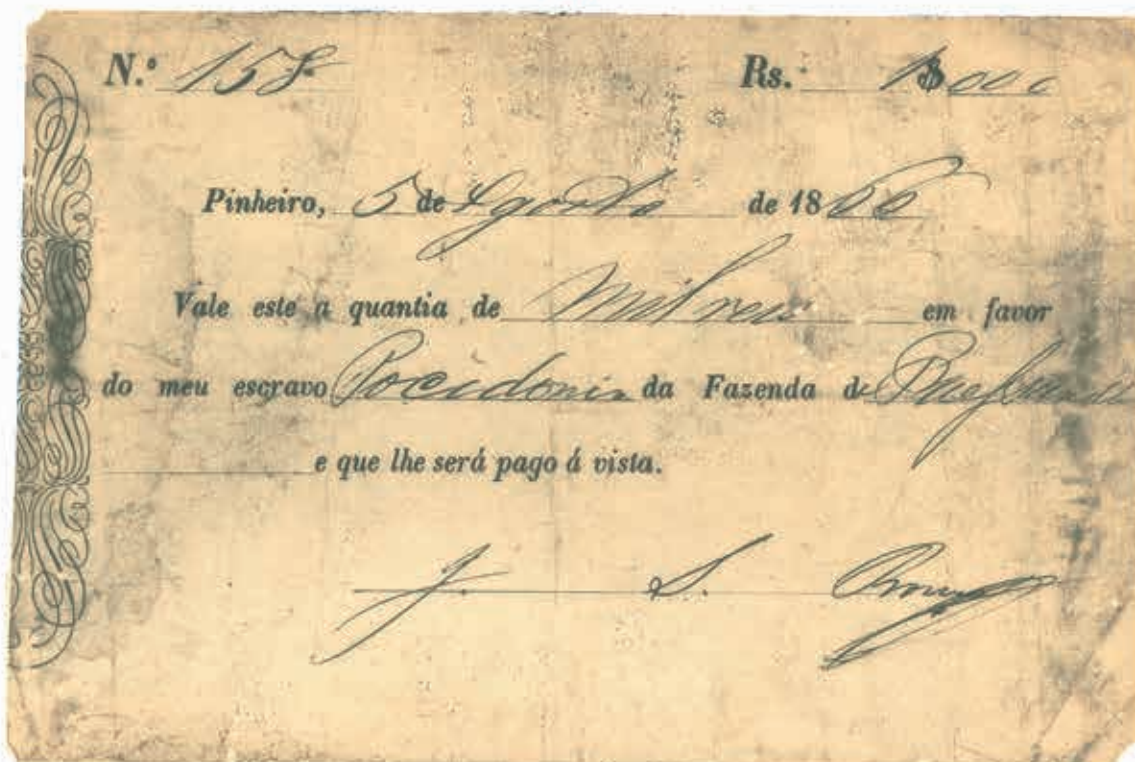 N.º 158 Rs. 1$000
Pinheiro, 5 de Agosto de 1866
Vale este a quantia de Mil reis em favor
do meu escravo Pocidonio da Fazenda de
e que lhe será pago á vista.
J. S.